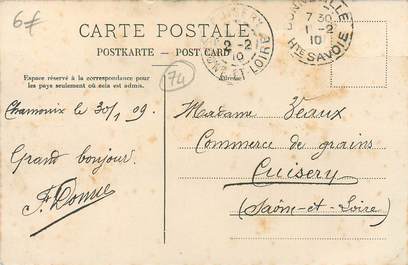 6€
CARTE POSTALE
POSTKARTE — POST CARD
Espace réservé à la correspondance pour
les pays seulement où cela est admis.
Adresse
74
2-2
10
ET-LOIRE
BONNEVILLE
7 30
1-2
10
Hte SAVOIE
Chamonix le 30/1 09.
Grand bonjour
F. Donne
Madame Veaux
Commerce de grains
Cuisery
(Saône-et-Loire)